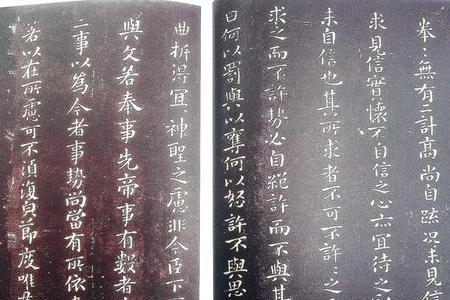 拳〻無有二計高尚自疏況未見信
求見信實懷不自信之心亦宜待之
未自信也其所求者不可不許〻之而
求之而不許勢必自絕許而不與其
曰何以罰與以奪何以怒許不與思
曲折得宜〻神聖之慮非今臣下
與文若奉事先帝事有數者
二事以為今者事勢尚當有所依
若以在所慮可不須復貌節度唯